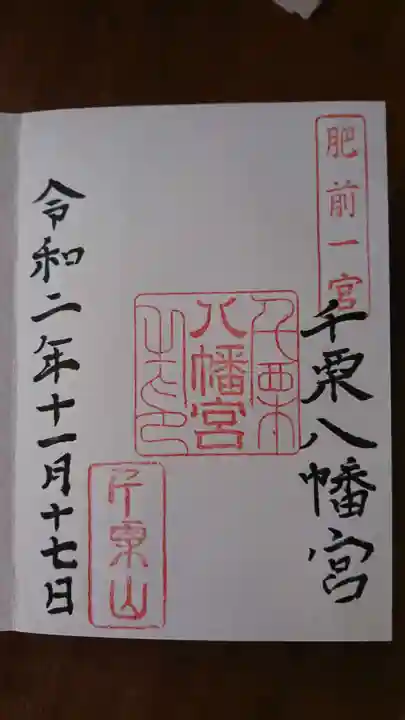 肥前一宮
千栗八幡宮
千栗
八幡宮
之印
令和二年十一月十七日